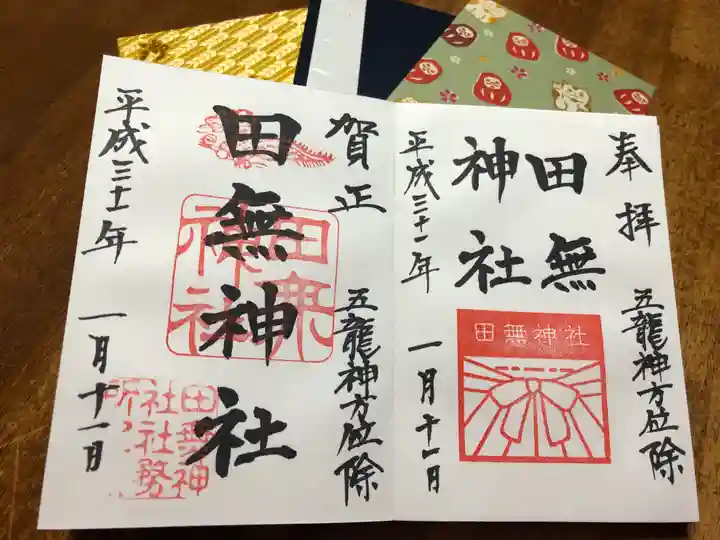 奉拝
五龍神方位除
田無
神社
田無神社
平成三十一年
一月十一日
賀正
五龍神方位除
田無神社
田無
神社
田無神
社社務
所
平成三十一年
一月十一日